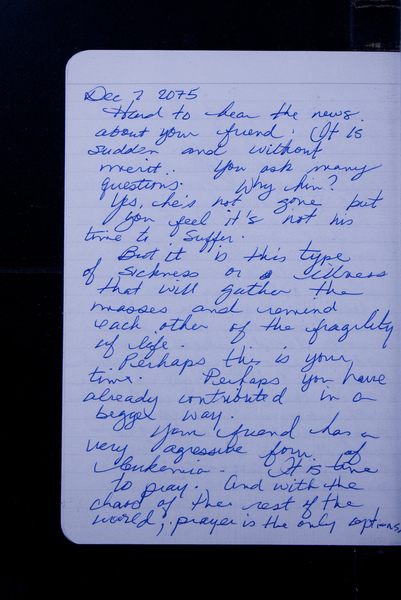 Dec 7 2075
Hard to hear the news
about your friend. (It is
sudden and without
merit. You ask many
questions. Why him?
Yes, he's not gone but
you feel it's not his
time to suffer.
But it is this type
of sickness or illness
that will gather the
masses and remind
each other of the fragility
of life.
Perhaps this is your
time. Perhaps you have
already contributed in a
bigger way.
Your friend has a
very agressive form of
leukemia. It is time
to pray. And with the
chaos of the rest of the
world, prayer is the only option